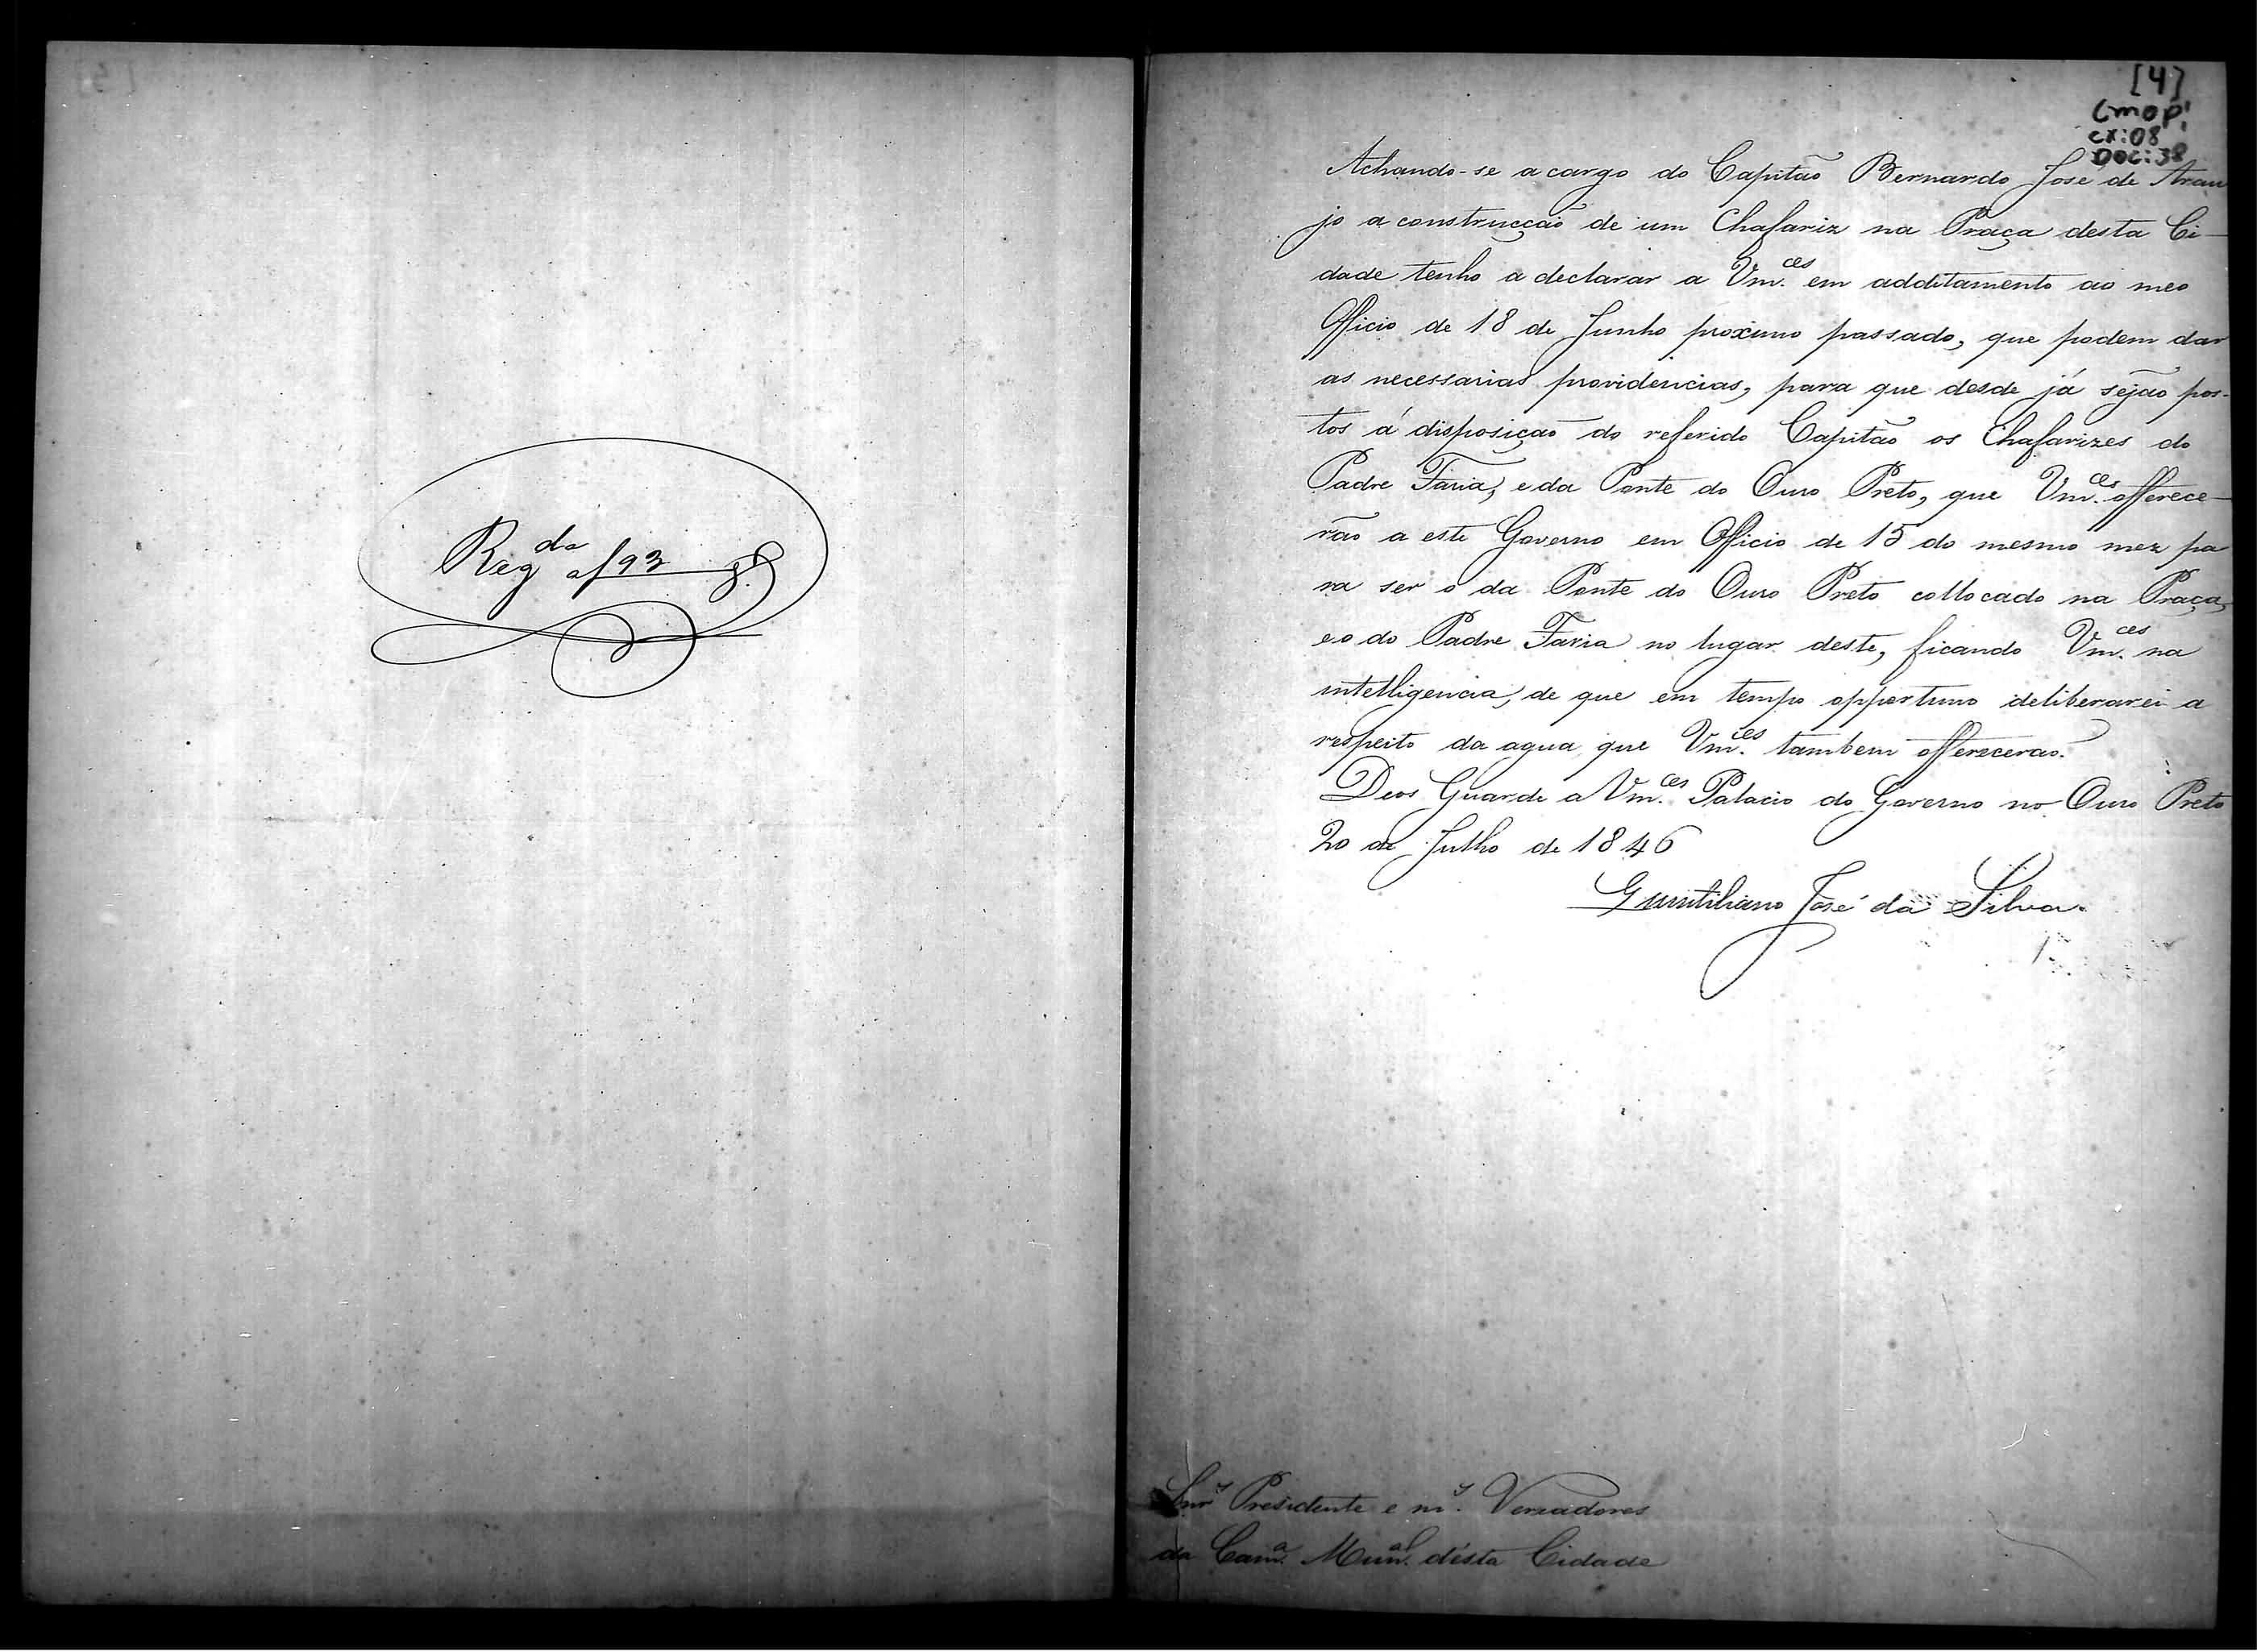 Reg.do a f 93
[4]
CMOP!
CX:08
DOC:38
Achando-se a cargo do Capitão Bernardo José de Arau
jo a construcção de um Chafariz na Praça desta Ci-
dade tenho a declarar a Vm.ces em additamento ao meo
Officio de 18 de Junho proximo passado, que podem dar
as necessarias providencias, para que desde já sejão pos-
tos á disposição do referido Capitão os Chafarizes do
Padre Faria, e da Ponte do Ouro Preto, que Vm.ces offerece-
rão a este Governo em Officio de 15 do mesmo mez pa
ra ser o da Ponte do Ouro Preto collocado na Praça,
e o do Padre Faria no lugar deste, ficando Vm.ces na
intelligencia, de que em tempo opportuno deliberarei a
respeito da agua, que Vm.ces tambem offerecerão.
Deos Guarde a Vm.ces Palacio do Governo no Ouro Preto
20 de Julho de 1846
Quintiliano José da Silva.
Snr.s Presidente e m.s Vereadores
da Cam.a Mun.al désta Cidade